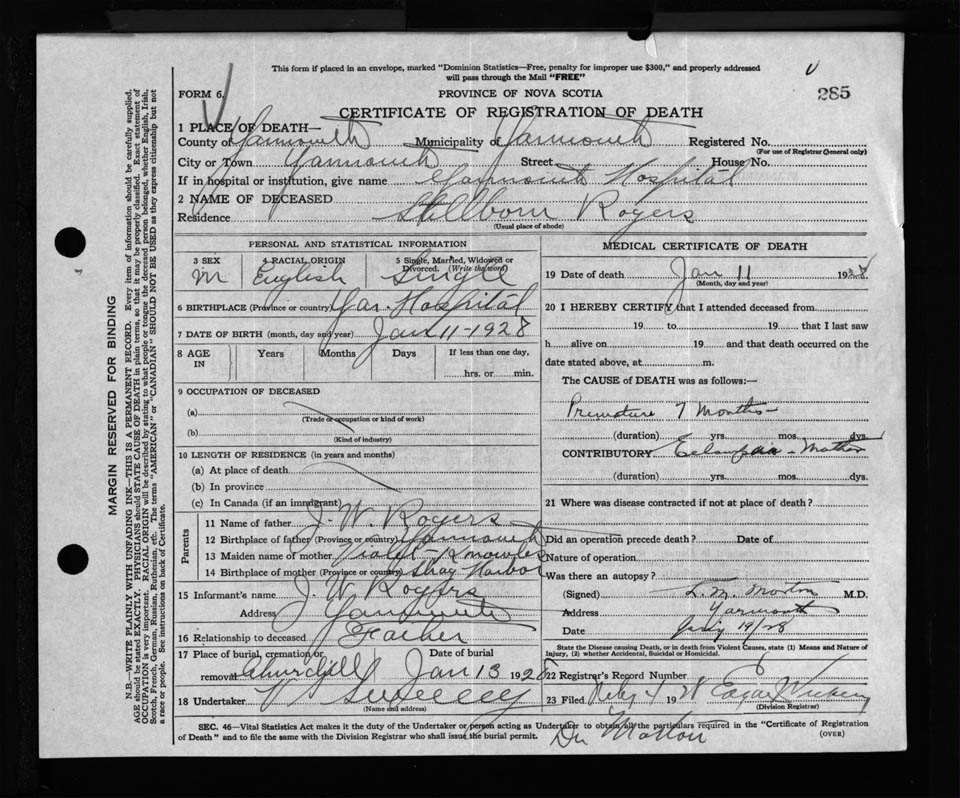 This form if placed in an envelope, marked "Dominion Statistics—Free, penalty for improper use $300," and properly addressed
will pass through the Mail "FREE"
FORM 6.
PROVINCE OF NOVA SCOTIA
285
CERTIFICATE OF REGISTRATION OF DEATH
1 PLACE OF DEATH—
County of Yarmouth Municipality of Yarmouth Registered No.
(For use of Registrar General only)
City or Town Yarmouth Street House No.
If in hospital or institution, give name Yarmouth Hospital
2 NAME OF DECEASED Stillborn Rogers
Residence
(Usual place of abode)
PERSONAL AND STATISTICAL INFORMATION
3 SEX 4 RACIAL ORIGIN 5 Single, Married, Widowed or Divorced. (Write the word)
M English Single
6 BIRTHPLACE (Province or country) Yar. Hospital
7 DATE OF BIRTH (month, day and year) Jan 11-1928
8 AGE IN Years Months Days If less than one day,
hrs. or min.
9 OCCUPATION OF DECEASED
(a)
(Trade or occupation or kind of work)
(b)
(Kind of industry)
10 LENGTH OF RESIDENCE (in years and months)
(a) At place of death
(b) In province
(c) In Canada (if an immigrant)
Parents
11 Name of father J. W. Rogers
12 Birthplace of father (Province or country) Yarmouth
13 Maiden name of mother Violet Knowles
14 Birthplace of mother (Province or country) Shag Harbor
15 Informant's name J. W. Rogers
Address Yarmouth
16 Relationship to deceased Father
17 Place of burial, cremation or Date of burial
removal Churchill Jan 13 1928
18 Undertaker V Sweeney
(Name and address)
MEDICAL CERTIFICATE OF DEATH
19 Date of death Jan 11 1928
(Month, day and year)
20 I HEREBY CERTIFY that I attended deceased from
19 to 19 that I last saw
h alive on 19 and that death occurred on the
date stated above, at m.
The CAUSE of DEATH was as follows:—
Premature 7 Months—
(duration) yrs. mos. dys.
CONTRIBUTORY Eclampsia - Mother
(duration) yrs. mos. dys.
21 Where was disease contracted if not at place of death?
Did an operation precede death? Date of
Nature of operation
Was there an autopsy?
(Signed) L. M. Morton M.D.
Address Yarmouth
Date 19/28
State the Disease causing Death, or in death from Violent Causes, state (1) Means and Nature of
Injury, (2) whether Accidental, Suicidal or Homicidal.
22 Registrar's Record Number 6
23 Filed Feby 4 1928 Edgar
(Division Registrar)
SEC. 46—Vital Statistics Act makes it the duty of the Undertaker or person acting as Undertaker to obtain all the particulars required in the "Certificate of Registration
of Death" and to file the same with the Division Registrar who shall issue the burial permit.
(OVER)
Dr Morton
MARGIN RESERVED FOR BINDING
N.B.—WRITE PLAINLY WITH UNFADING INK—THIS IS A PERMANENT RECORD. Every item of information should be carefully supplied.
AGE should be stated EXACTLY. PHYSICIANS should STATE CAUSE OF DEATH in plain terms, so that it may be properly classified. Exact statement of
OCCUPATION is very important. RACIAL ORIGIN will be described by stating to what people or tongue the deceased person belonged, whether English, Irish,
Scotch, French, German, Russian, Ruthenian, etc. The terms "AMERICAN" or "CANADIAN" SHOULD NOT BE USED as they express citizenship but not
a race or people. See instructions on back of Certificate.